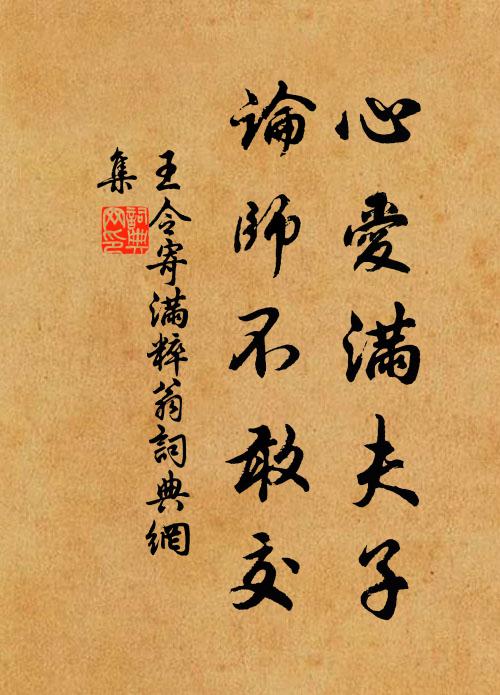 心愛滿夫子
論師不敢交
王令寄滿粹翁詞典網
集
詞典網印